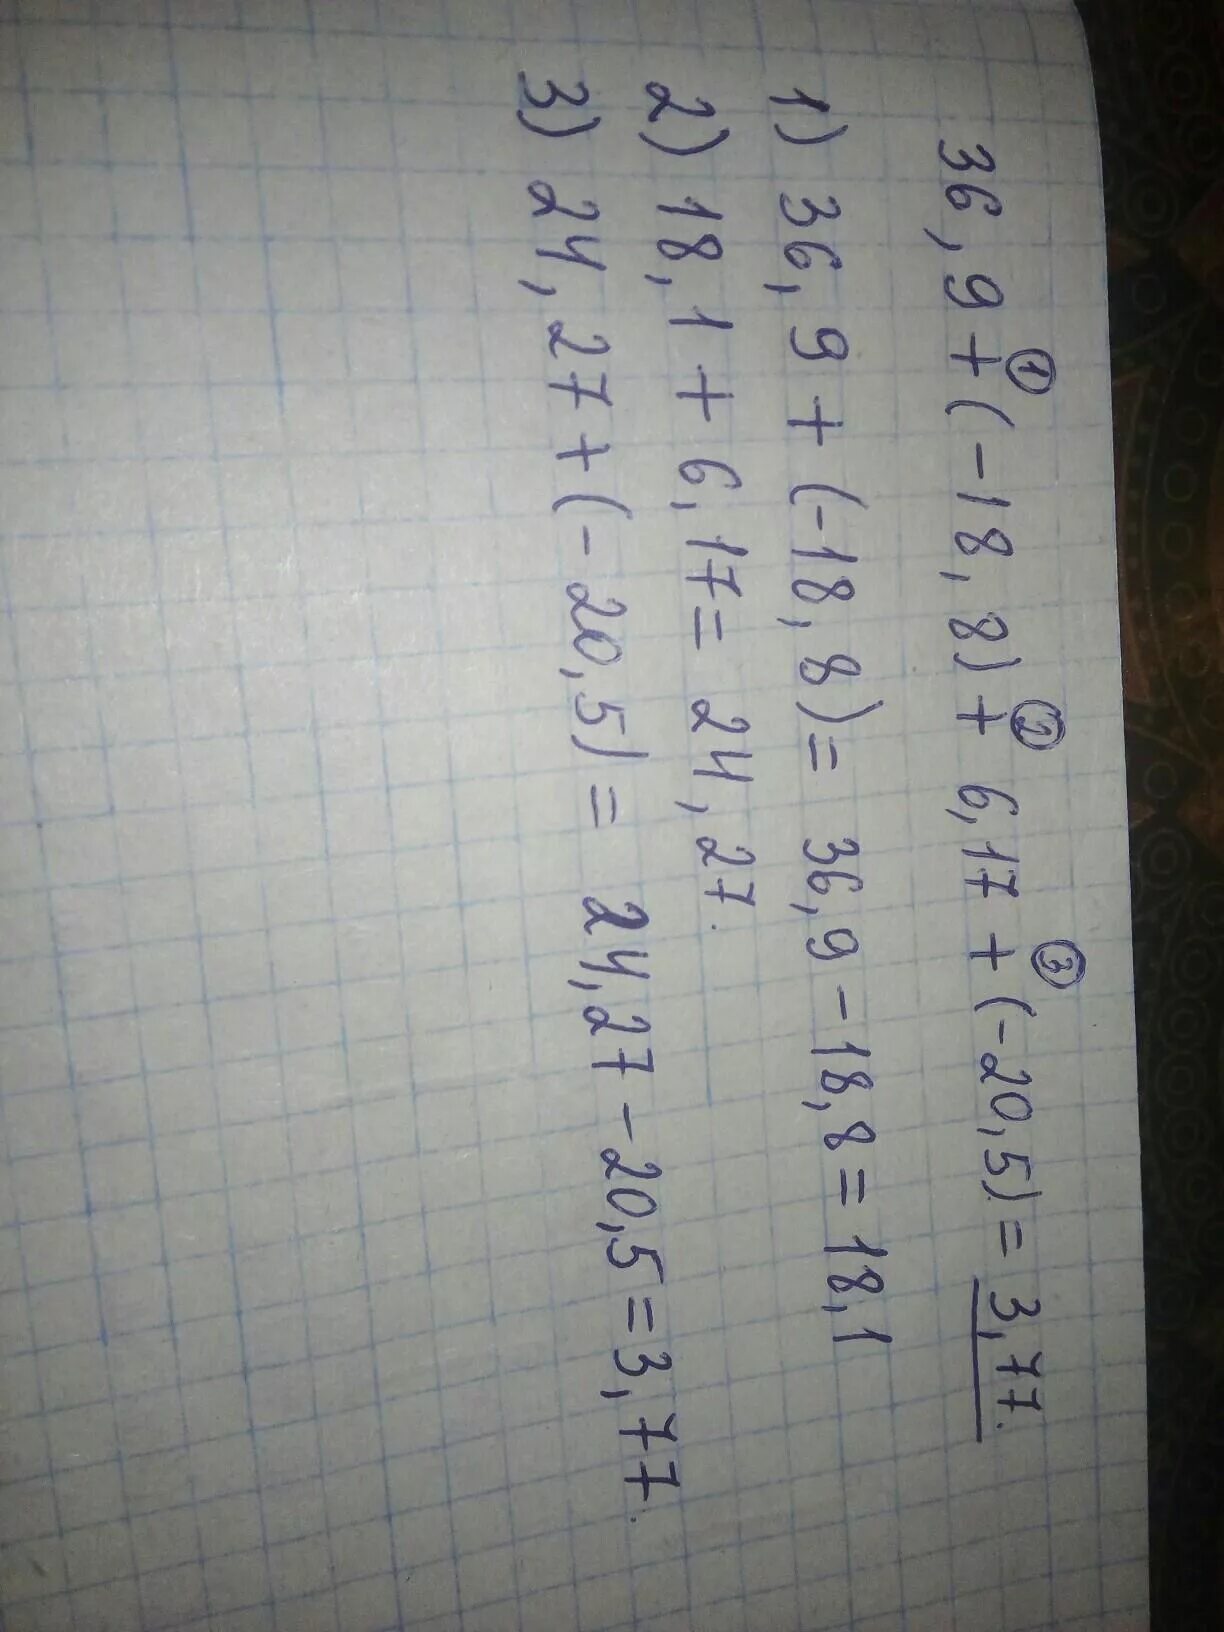 ① ② ③
36,9 + (-18,8) + 6,17 + (-20,5) = 3,77.
1) 36,9 + (-18,8) = 36,9 - 18,8 = 18,1
2) 18,1 + 6,17 = 24,27.
3) 24,27 + (-20,5) = 24,27 - 20,5 = 3,77.